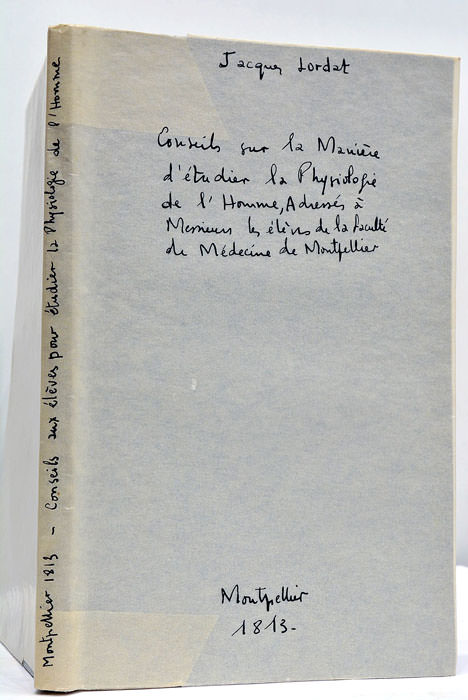 Jacques Lordat
Conseils sur la Manière
d'étudier la Physiologie
de l'Homme, Adressés à
Messieurs les élèves de la faculté
de Médecine de Montpellier
Montpellier
1813-
Montpellier 1813 - Conseils aux élèves pour étudier la Physiologie de l'Homme